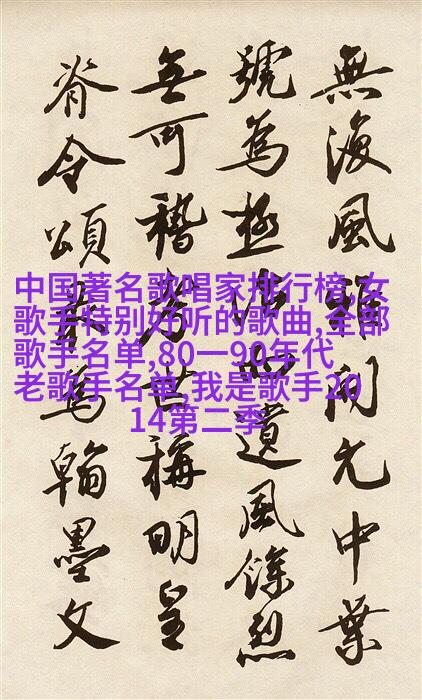 無風雖開元中葉
號為極治而遺風餘烈
無可稽考世稱明皇
脊令頌最為翰墨文
中国著名歌唱家排行榜,女
歌手特别好听的歌曲,全部
歌手名单,80一90年代
老歌手名单,我是歌手20
14第二季